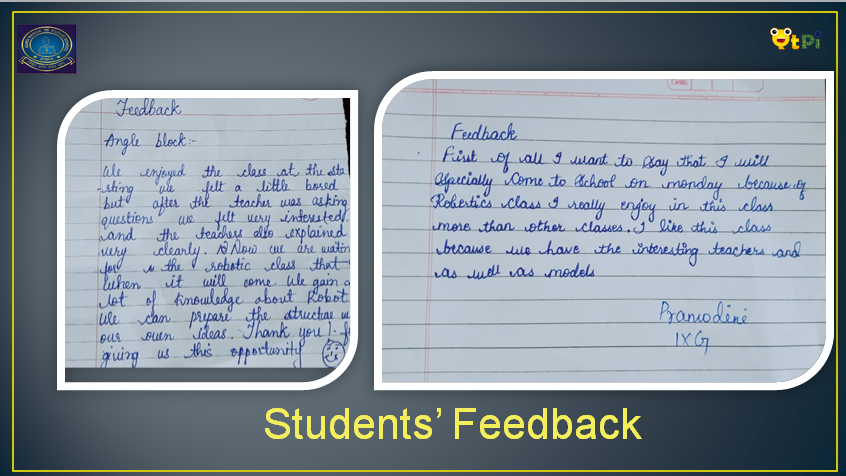 QtPi
Feedback
Angle block:-
We enjoyed the class at the sta
-rting we felt a little bored
but after the teacher was asking
questions we felt very interested
and the teachers also explained
very clearly. Now we are waiting
for the robotic class that
when it will come We gain a
lot of knowledge about Robot
We can prepare the structure w
our own ideas. Thank you! f
giving us this opportunity
Feedback
First of all I want to say that I will
especially come to school on monday because of
Robertics class I really enjoy in this class
more than other classes. I like this class
because we have the interesting teachers and
as well as models
Pramodini
IX G
Students' Feedback